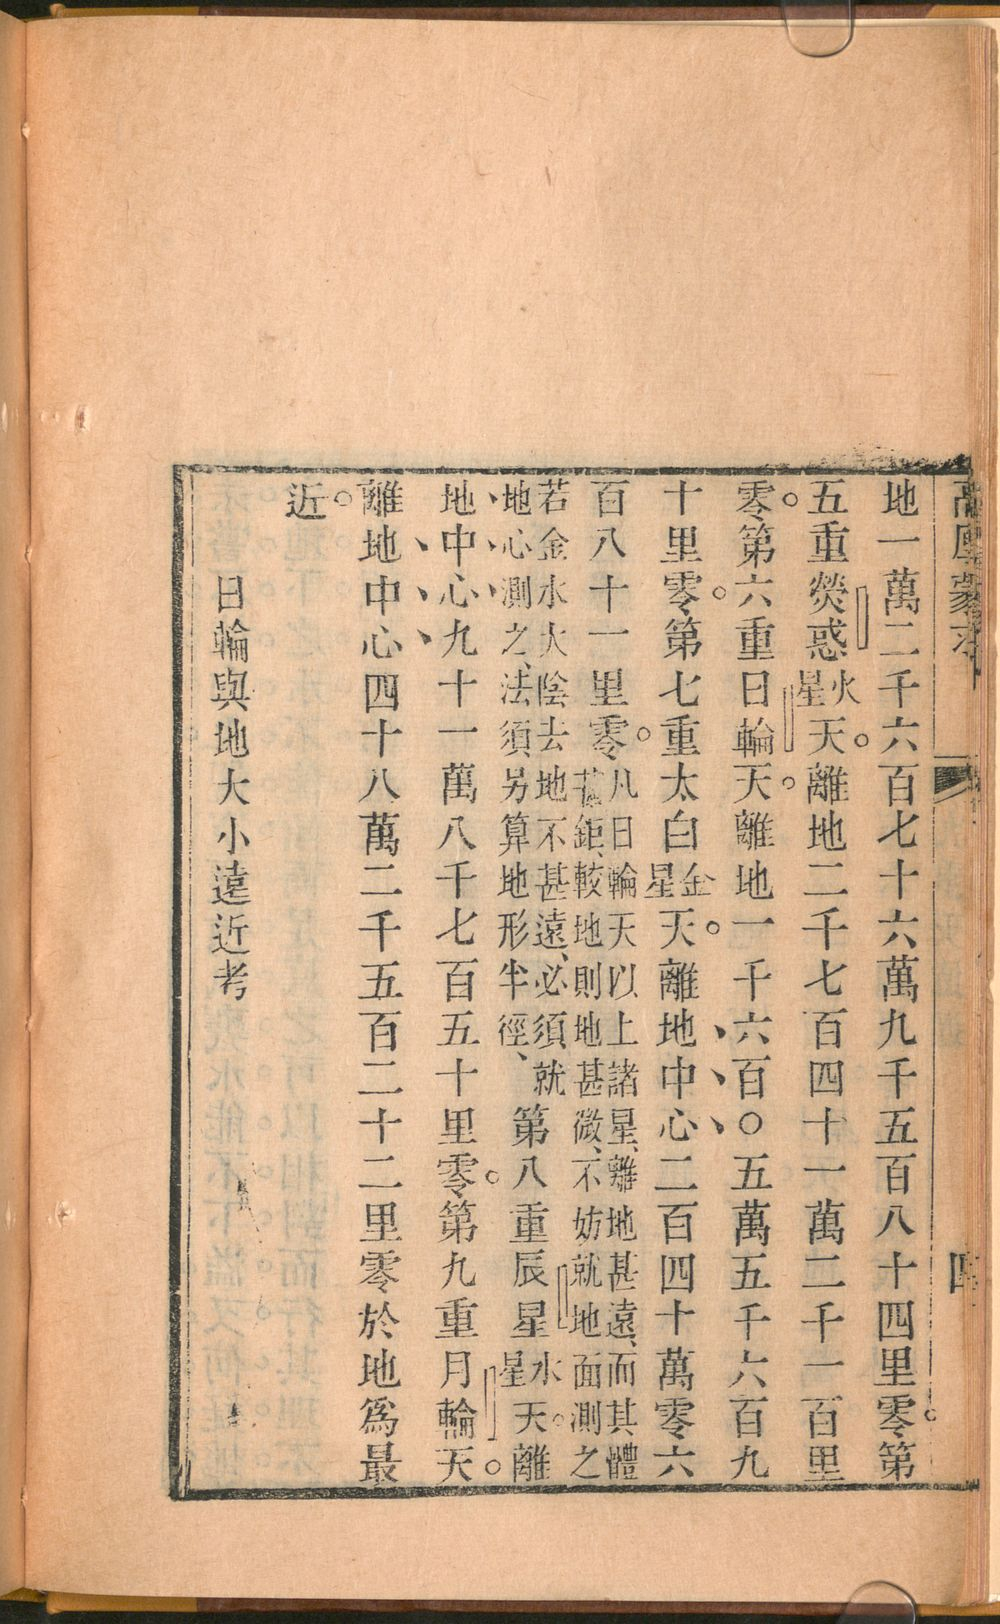 高厚蒙求
四
地一萬二千六百七十六萬九千五百八十四里零。第
五重熒惑火星天。離地二千七百四十一萬二千一百里
零。第六重日輪天。離地一千六百〇五萬五千六百九
十里零。第七重太白金星天。離地中心二百四十萬零六
百八十一里零。凡日輪天以上諸星、離地甚遠、而其體
甚鉅、較地則地甚微、不妨就地面測之
若金水太陰去地不甚遠、必須就
地心測之、法須另算地形半徑、第八重辰星水星天。離
地中心九十一萬八千七百五十里零。第九重月輪天。
離地中心四十八萬二千五百二十二里零於地爲最
近。
日輪與地大小遠近考